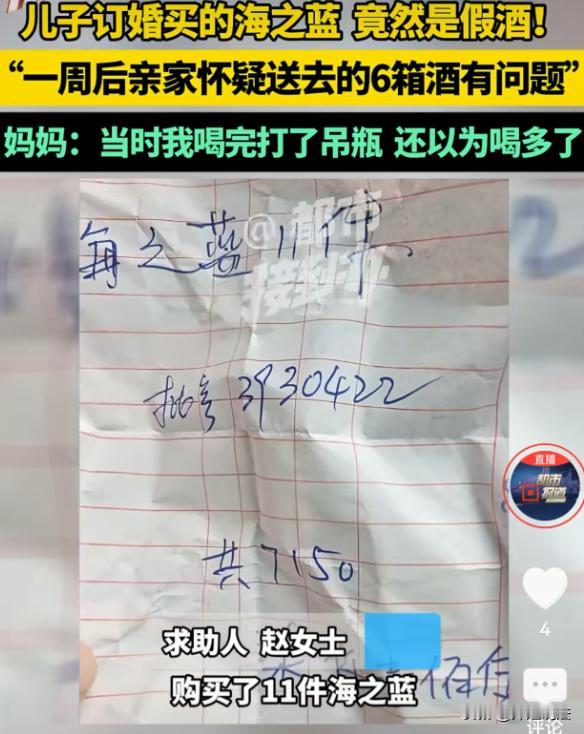 儿子订婚买的海之蓝 竟然是假酒!
“一周后亲家怀疑送去的6箱酒有问题”
妈妈:当时我喝完打了吊瓶 还以为喝多了
@都市
海之蓝11件
批号3930422
直播
都市
报道
共7150
4
求助人 赵女士
购买了11件海之蓝
评论